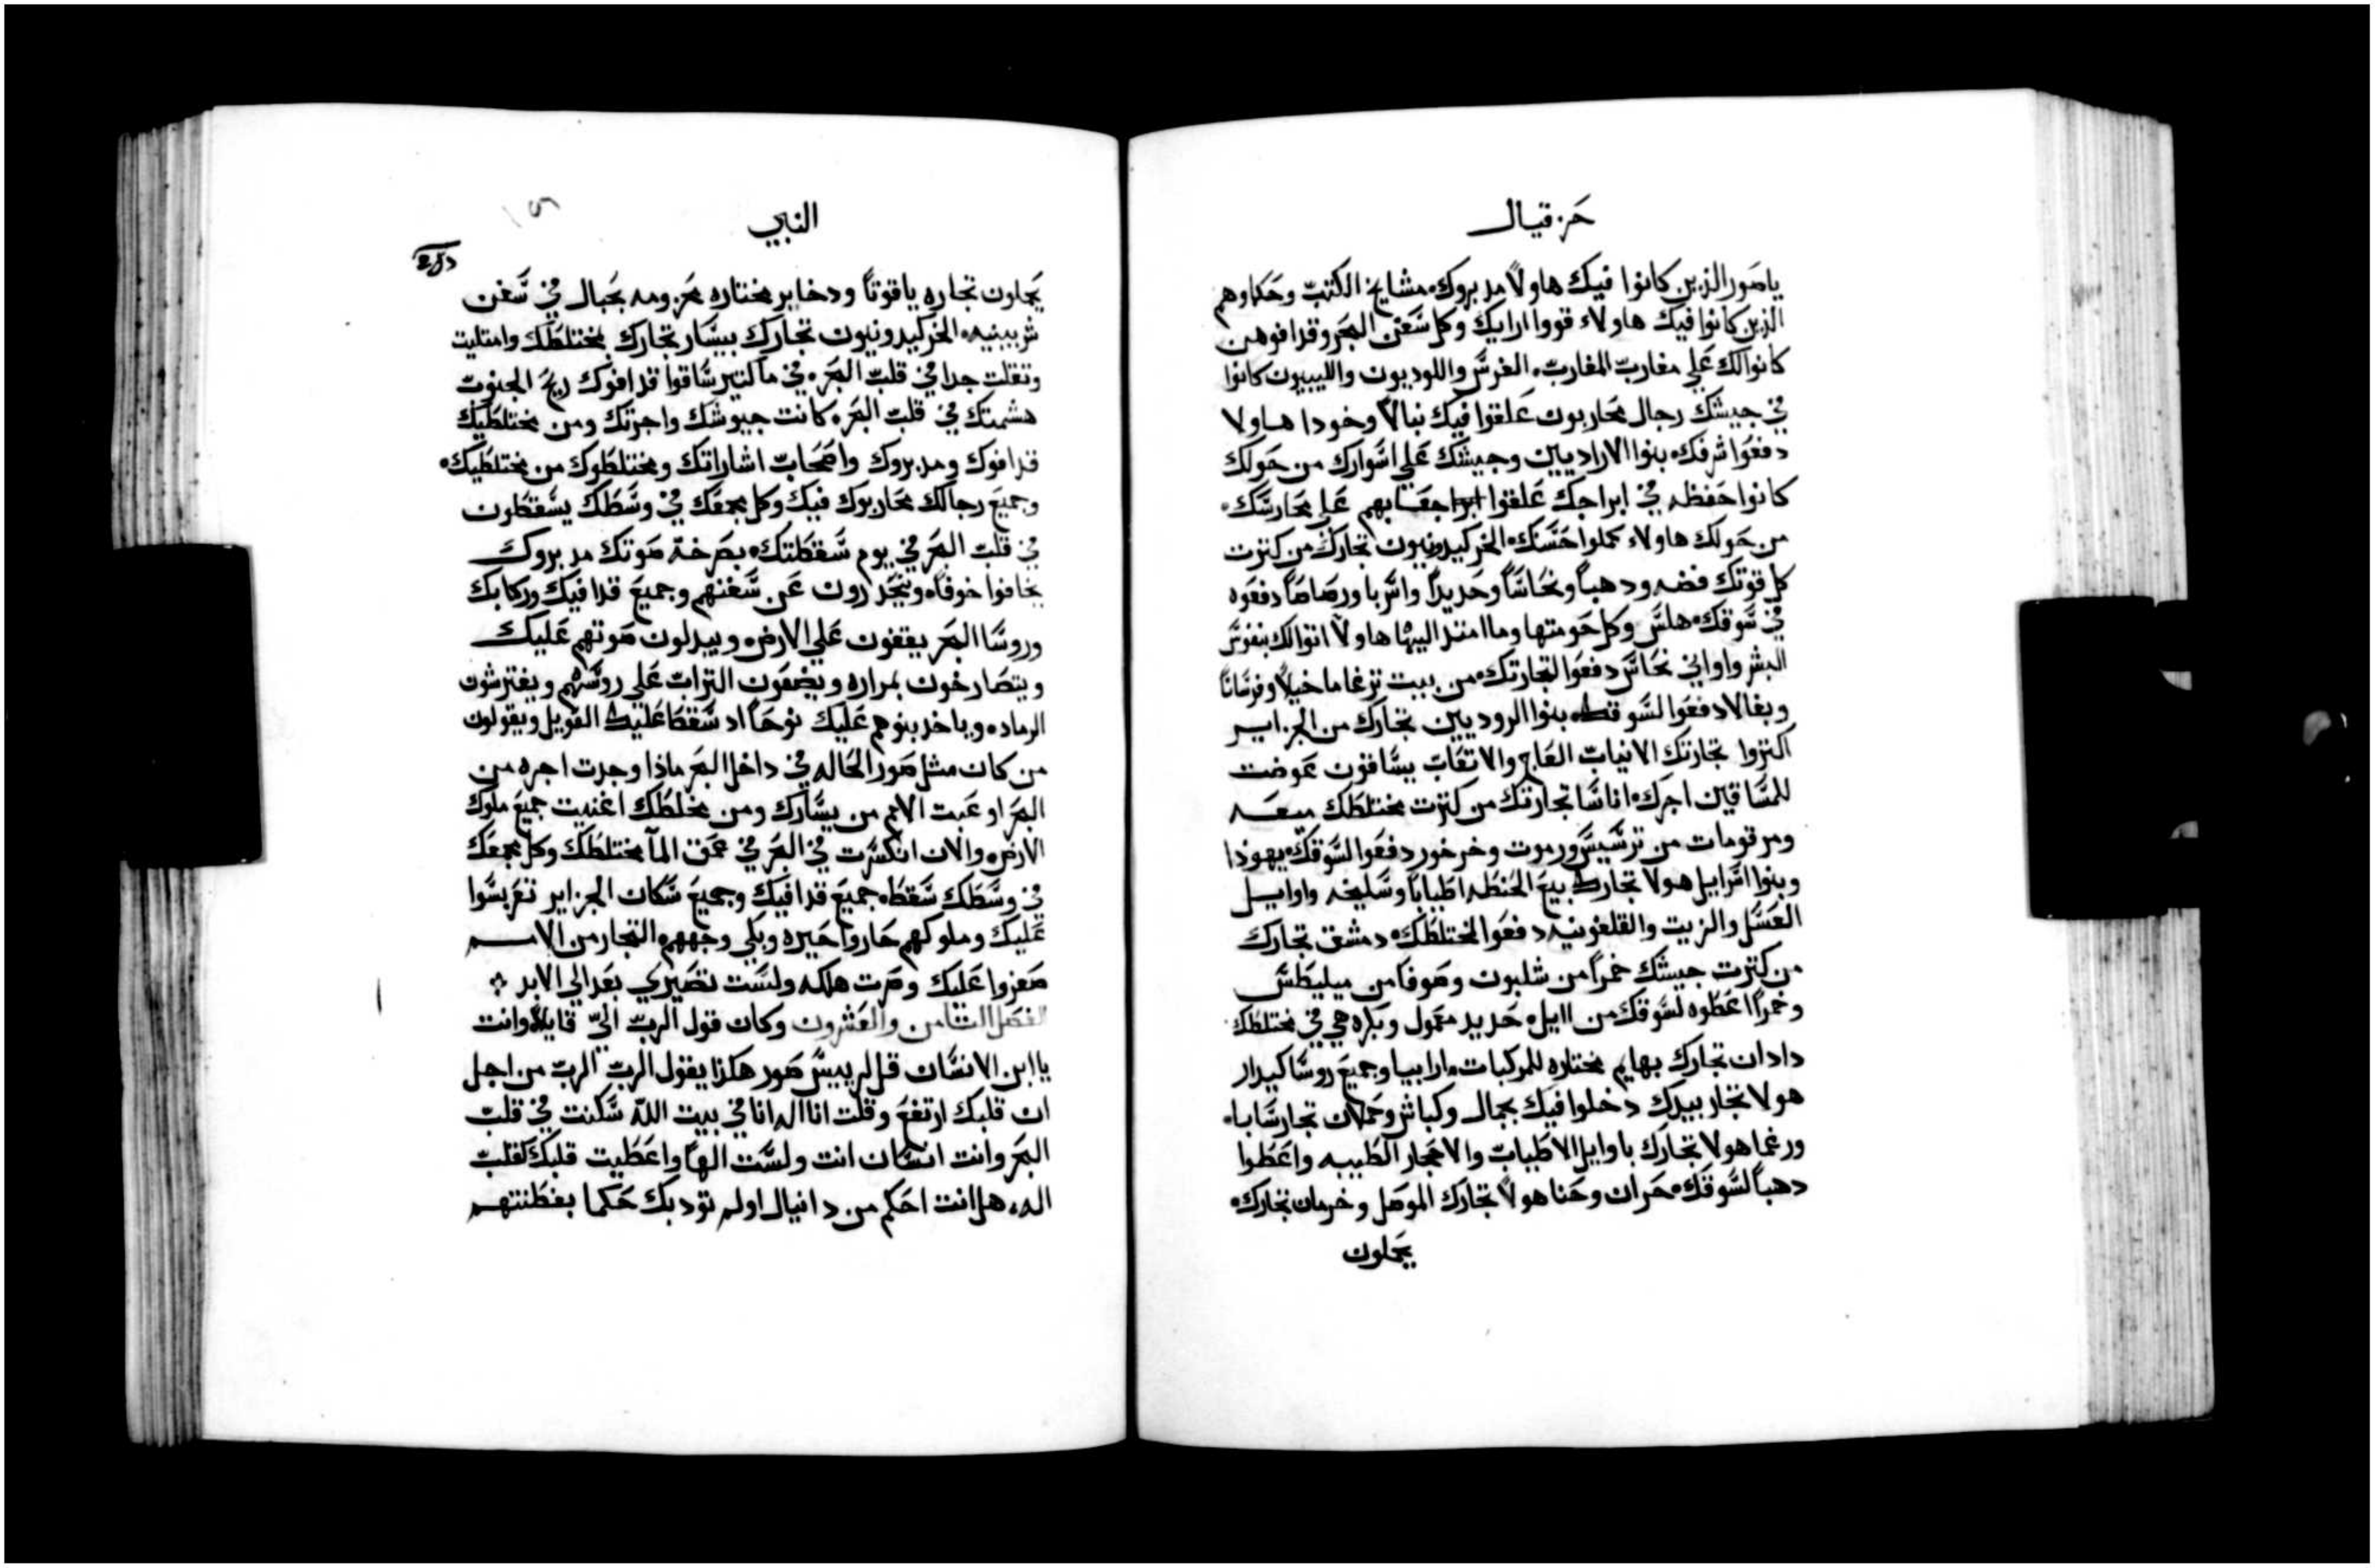 حزقيال
ياصور الذين كانوا فيك هاولا مدبروك مشايخ الكتب وحكماوهم
الذين كانوا فيك هاولاء قووا ارايك وكل سفن البحر وقدافوهن
كانوا لك علي مغارب المغارب الفرس واللوديون والليبيون كانوا
في جيشك رجال محاربون علقوا فيك نبالا وخودا هاولا
دفعوا شرفك بنوا الاراديين وجيشك علي اسوارك من حولك
كانوا حفظه في ابراجك علقوا جعابهم علي محارسك
من حولك هاولاء كملوا حسنك الخركيدونيون تجارك من كثرت
كل قوتك فضه ودهباً ونحاساً وحديداً واسربا ورصاصاً دفعوه
في سوقك هلس وكل حومتها وما امتد اليها هاولا اتوا لك بنفوس
البشر واواني نحاس دفعوا لتجارتك من بيت ترغاما خيلاً وفرساناً
وبغالا دفعوا لسوقك بنوا الروديين تجارك من الجزاير
اكثروا تجارتك الانياب العاج والاتقاب يساقون عوضت
للمساقين اجرك اناسا تجارتك من كثرت مختلطك ميعه
ومرقومات من ترسيس ورموت وخرخور دفعوا لسوقك يهوذا
وبنوا اسرايل هولا تجارك بيع الحنطه اطياباً وسليخه واوايل
العسل والزيت والقلفونيه دفعوا لمختلطك دمشق تجارك
من كثرت جيشك خمراً من شلبون وصوفا من ميليطس
وخمراً اعطوه لسوقك من اايل حديد معمول وبكره هي في مختلطك
دادان تجارك بهايم مختاره للمركبات ارابيا وجميع روسا كيدار
هولا تجار بيدك دخلوا فيك بجمال وكباش وحملان تجار سابا
ورغما هولا تجارك باوايل الاطياب والاحجار الطيبه واعطوا
دهباً لسوقك حران وحنا هولا تجارك الموصل وخرمان تجارك
يحملون
النبي
يحملون تجاره ياقوتاً ودخاير مختاره محزومه بحبال في سفن
شربينيه الخركيدونيون تجارك بيسار تجارك بمختلطك وامتليت
وتقلت جدا في قلب البحر في ما كتير ساقوا قدافوك ريح الجنوب
هشمتك في قلب البحر كانت جيوشك واجرتك ومن مختلطيك
قدافوك ومدبروك واصحاب اشاراتك ومختلطوك من مختلطيك
وجميع رجالك محاربوك فيك وكل مجمعك في وسطك يسقطون
في قلب البحر في يوم سقطتك بصرخة صوتك مدبروك
يخافوا خوفاً وينحدرون عن سفنهم وجميع قدافيك وركابك
وروسا البحر يقفون علي الارض ويبدلون صوتهم عليك
ويتصارخون بمراره ويضعون التراب علي روسهم ويفترشون
الرماد وياخد بنوهم عليك نوحاً اد سقطا عليك العويل ويقولون
من كان مثل صور الحاله في داخل البحر ماذا وجدت اجره من
البحر او عبت الامم من يسارك ومن مخلطك اغنيت جميع ملوك
الارض والان انكسرت في البحر في عمق المآ مختلطك وكل مجمعك
في وسطك سقط جميع قدافيك وجميع سكان الجزاير تعربسوا
عليك وملوكهم حاروا حيره وبكي وجههم التجار من الامم
صفروا عليك وصرت هلكه ولست تصيري بعد الي الابد
الفصل الثامن والعشرون وكان قول الرب اليّ قايلاً وانت
يا ابن الانسان قل لرييس صور هكذا يقول الرب الرب من اجل
ان قلبك ارتفع وقلت انا اله انا في بيت الله سكنت في قلب
البحر وانت انسان انت ولست الهاً واعطيت قلبك كقلب
اله هل انت احكم من دانيال او لم تودبك حكما بفطنتهم